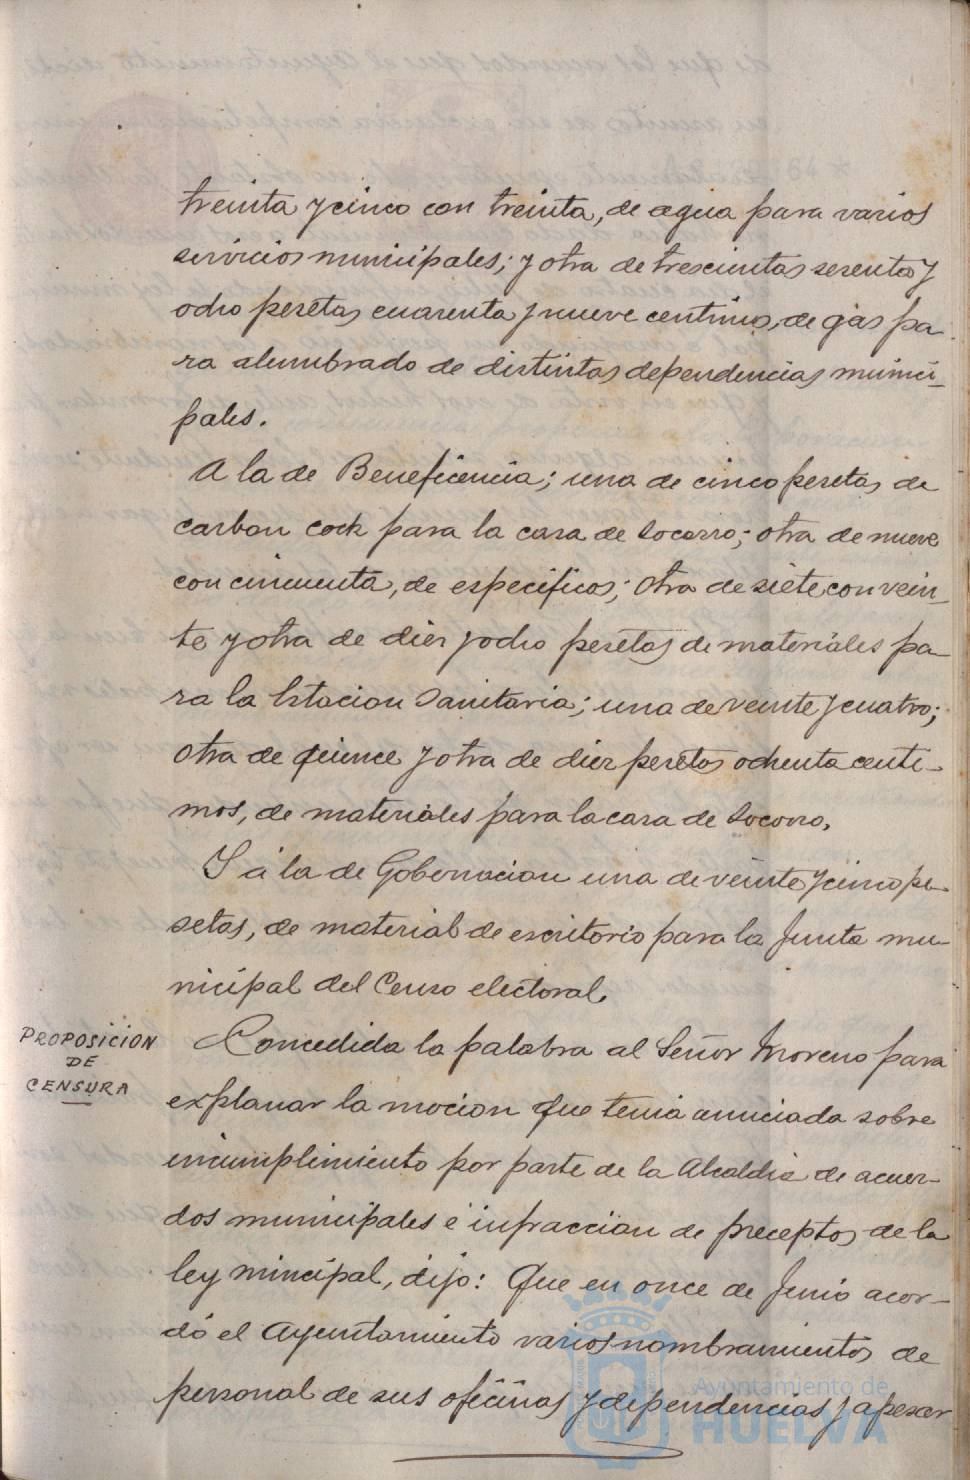 treinta y cinco con treinta, de agua para varios
servicios municipales; y otra de trescientas sesenta y
ocho pesetas cuarenta y nueve centimos, de gas pa
ra alumbrado de distintas dependencias munici-
pales.
A la de Beneficencia; una de cinco pesetas de
carbon cock para la casa de Socorro; otra de nueve
con cincuenta, de especificos; otra de siete con vein-
te y otra de diez y ocho pesetas de materiales pa-
ra la Estacion Sanitaria; una de veinte y cuatro;
otra de quince y otra de diez pesetas ochenta centi-
mos, de materiales para la casa de Socorro.
Y á la de Gobernacion una de veinte y cinco pe-
setas, de material de escritorio para la Junta mu-
nicipal del Censo electoral.
PROPOSICION
DE
CENSURA
Concedida la palabra al Señor Moreno para
explanar la mocion que tenia anuciada sobre
incumplimiento por parte de la Alcaldia de acuer-
dos municipales é infraccion de preceptos de la
ley mincipal, dijo: Que en once de Junio acor-
dó el Ayuntamiento varios nombramientos de
personal de sus oficinas y dependencias y apesar
Ayuntamiento de
HUELVA